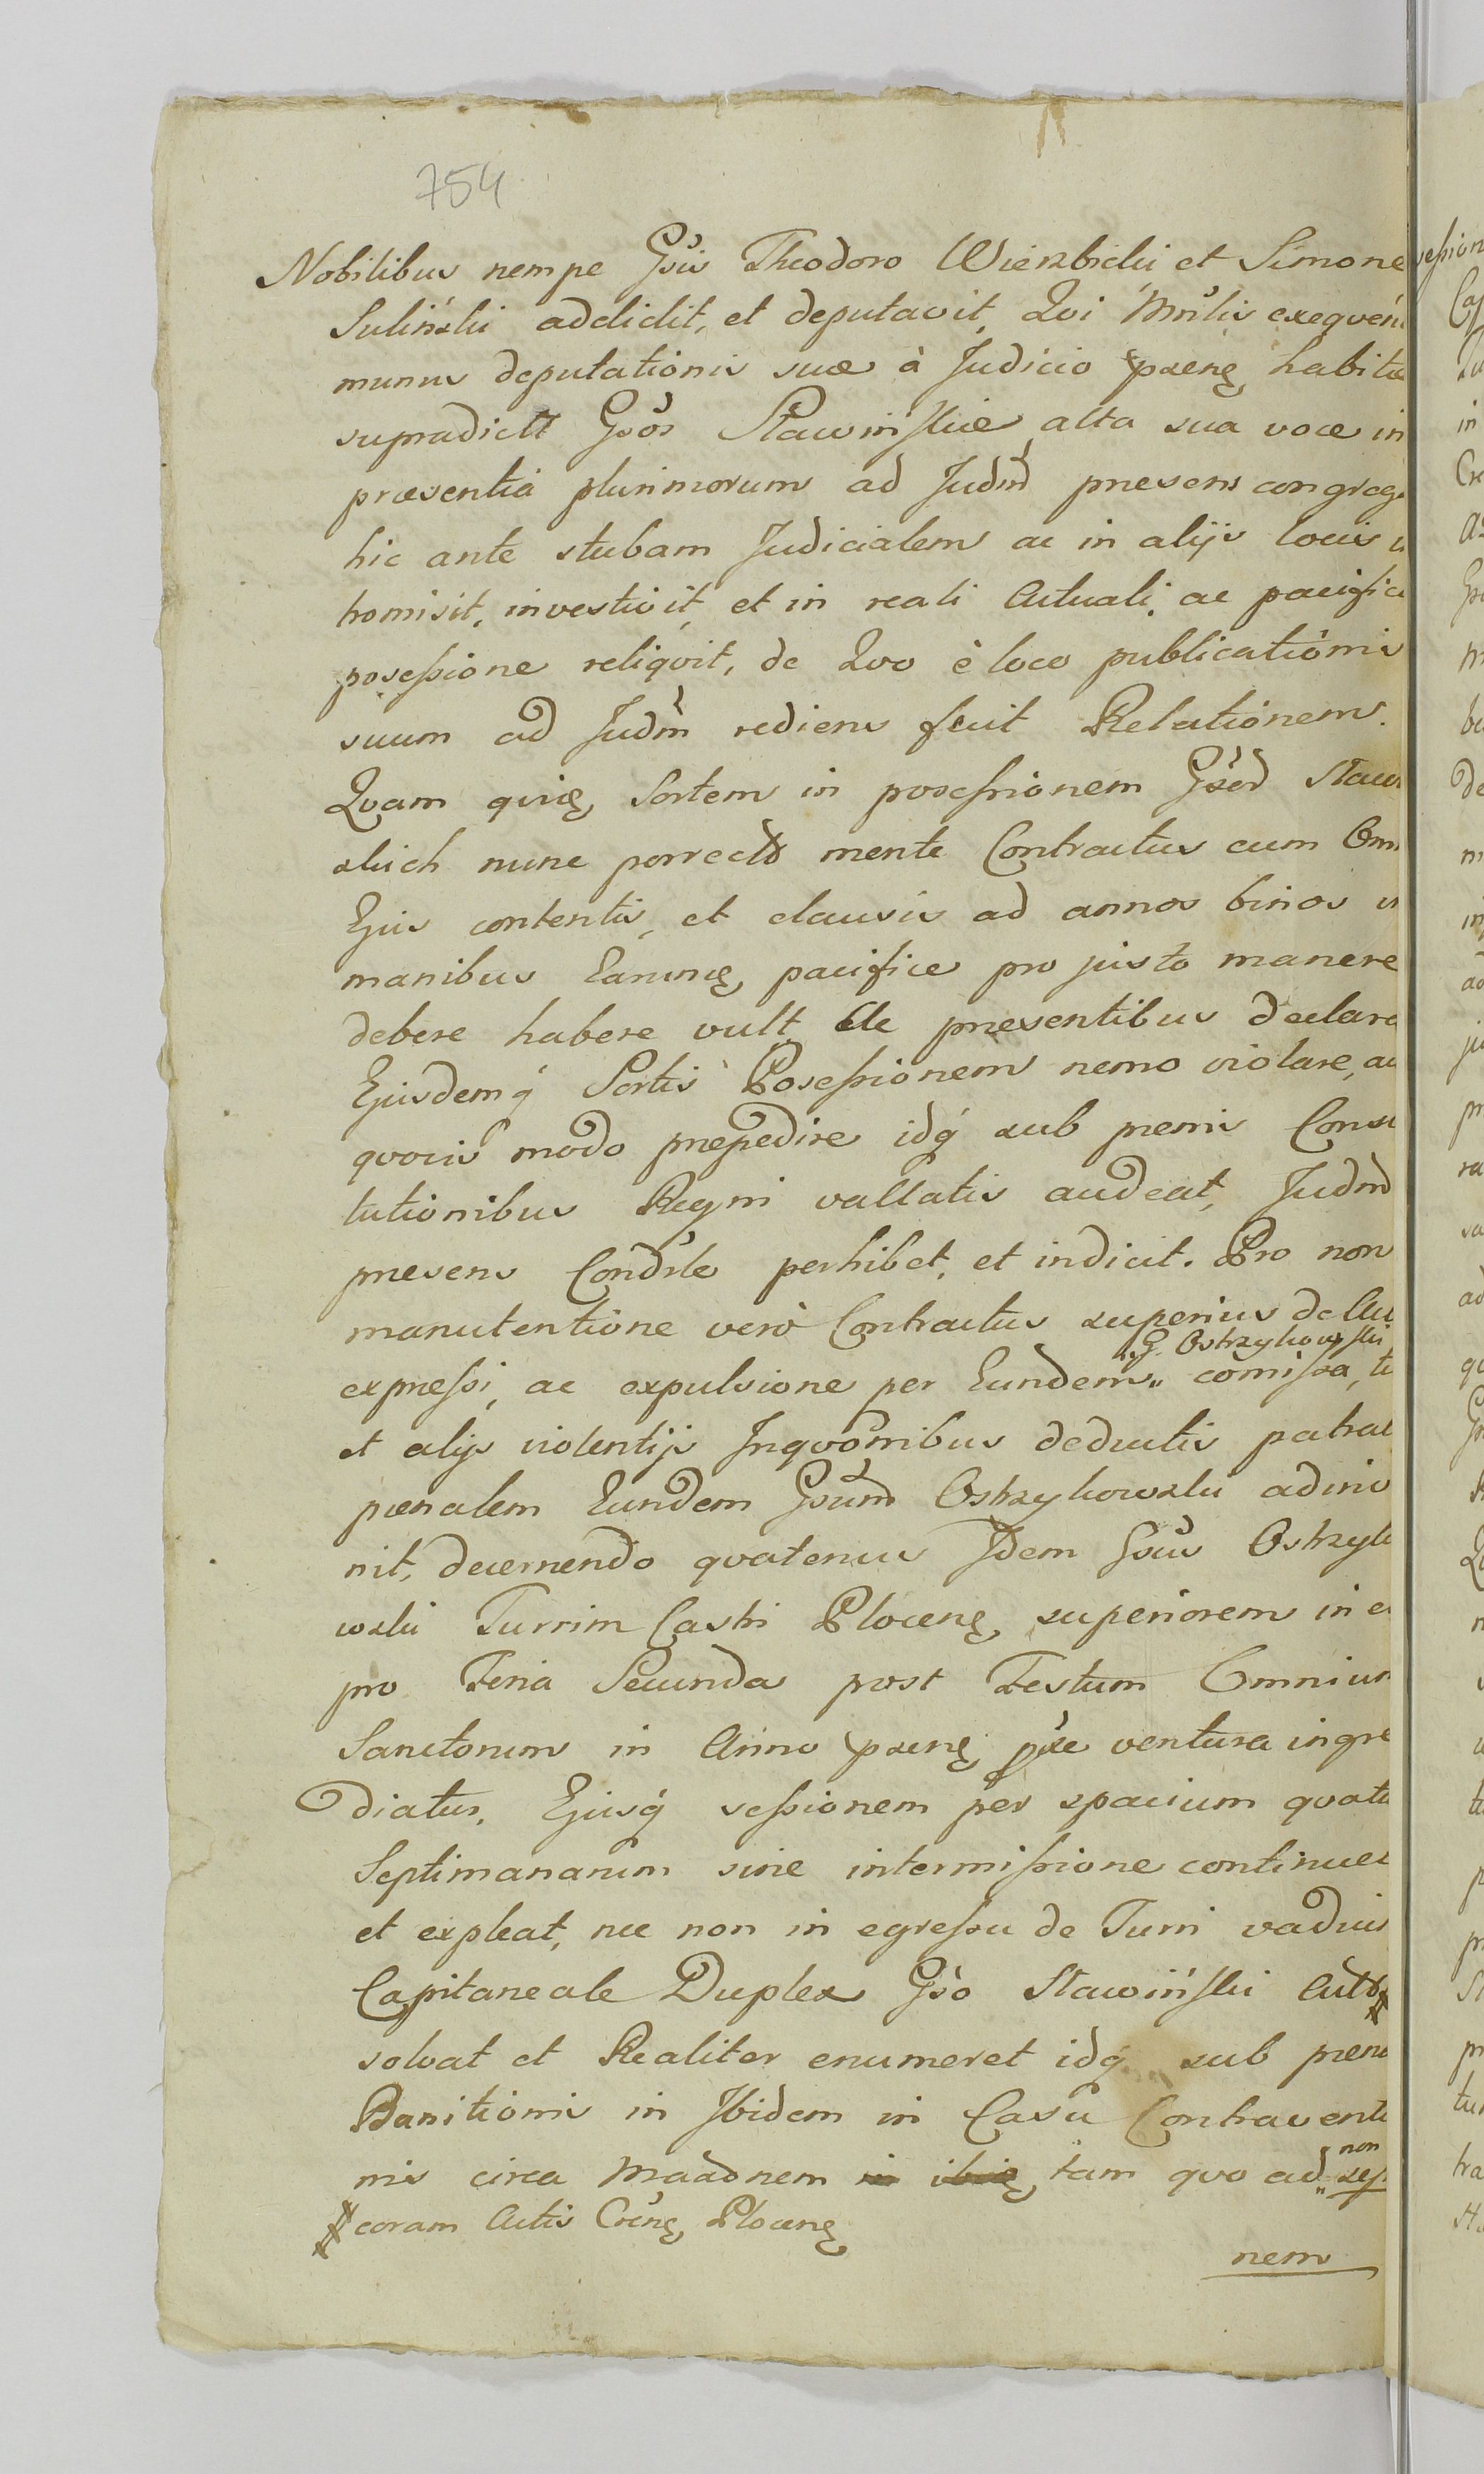 754
Nobilibus nempe Gsis Theodoro Wierzbicki et Simone
Suliński addidit, et deputavit, Qvi Mnlis exeqven
munus deputationis suæ à Judicio pseng habitæ
supradictt Gsos Sławińskie alta sua voce in
præsentia plurimorum ad Judm presens congrega
hic ante stubam Judicialem ac in alijs locis
tromisit, investivit, et in reali Actuali, ac pacifica
posessione reliqvit, de Qvo è loco publicationis
suum ad Judm rediens fecit Relationem.
Qvam qviq Sortem in posessionem Gsod Sław
skich nunc porrecto mente Contractus cum Omni
Ejus contentis, et clausis ad annos binos
manibus Earunq pacifice pro justo manere
debere habere vult Ac presentibus declara
Ejusdemq Sortis Posessionem nemo violare, au
qvovis modo prepedire idq sub penis Consti
tutionibus Regni vallatis audeat, Judm
presens Condsle perhibet, et indicit. Pro non
manutentione verò Contractus superius de Act
G. Ostrzykowski
expressi, ac expulsione per Eundem „ comissa, t
et alijs violentijs Inqvonibus deductis patrat
pœnalem Eundem Gsum Ostrzykowski adinv
nit, decernendo qvatenus Idem Gsus Ostrzyk
wski Turrim Castri Ploceng superiorem in e
pro Feria Secunda post Festum Omnium
Sanctorum in Anno pseng pxe ventura ingre
diatur, Ejusq sessionem per spacium qvatu
Septimanarum sine intermissione continuet
et expleat, nec non in egressu de Turri vadium
Capitaneale Duplex Gso Sławiński Actt
solvat et Realiter enumeret idq sub pena
Banitionis in Ibidem in Casu Contraventi
non
nis circa Maadnem tam qvo ad „ ses
coram Actis Creng Ploceng
nem